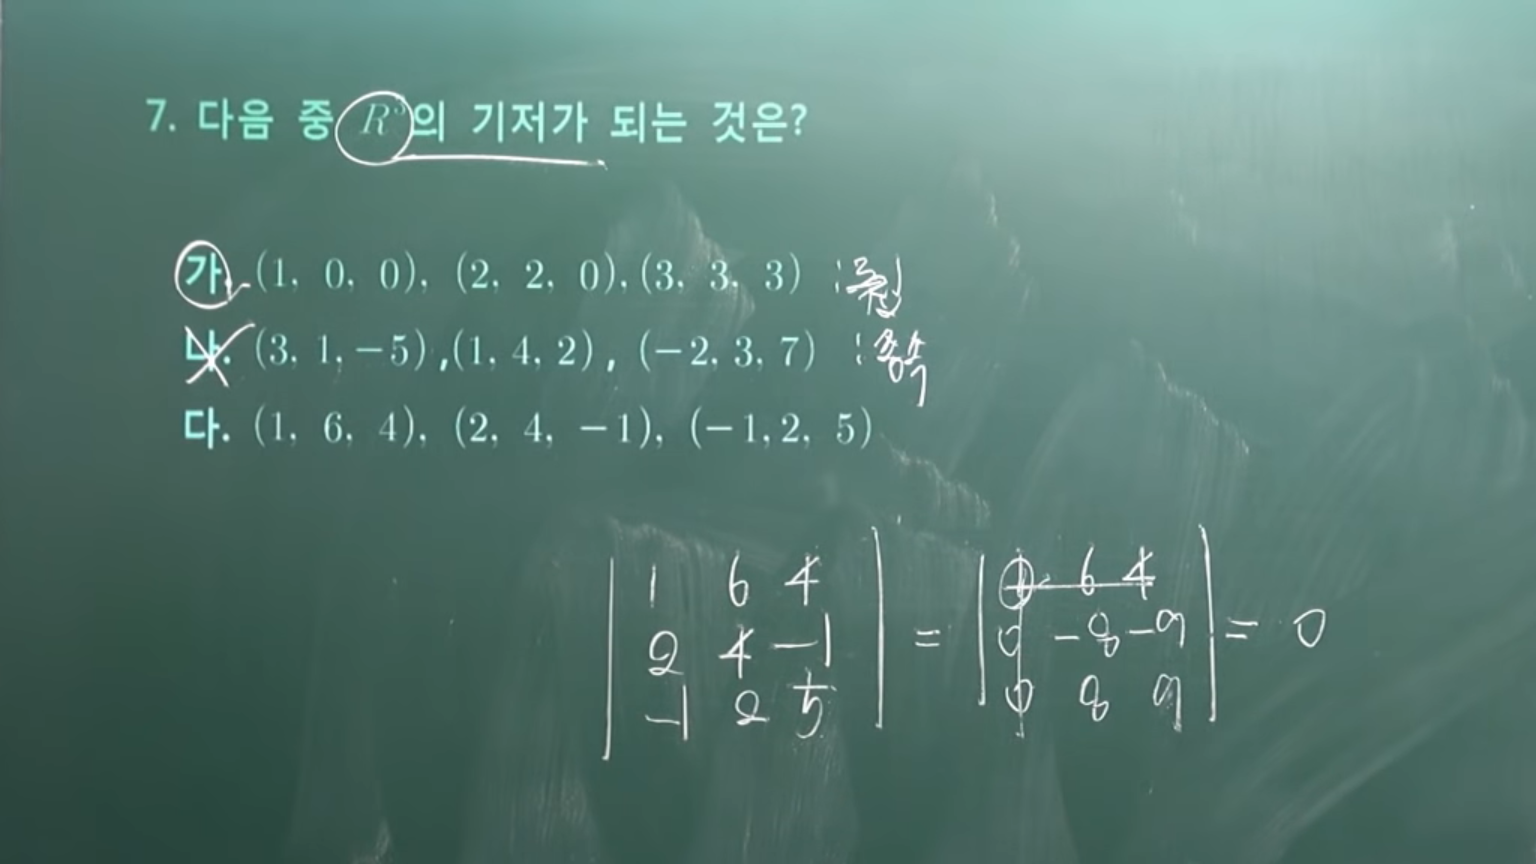 7. 다음 중 R³의 기저가 되는 것은?
가. (1, 0, 0), (2, 2, 0), (3, 3, 3) : 독립
나. (3, 1, −5), (1, 4, 2), (−2, 3, 7) : 종속
다. (1, 6, 4), (2, 4, −1), (−1, 2, 5)
| 1 6 4 | | 1 6 4 |
| 2 4 −1 | = | 0 −8 −9 | = 0
| −1 2 5 | | 0 8 9 |